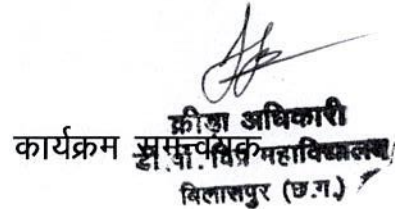 क्रीड़ा अधिकारी
कार्यक्रम समन्वयक
डी.पी. विप्र महाविद्यालय
बिलासपुर (छ.ग.)